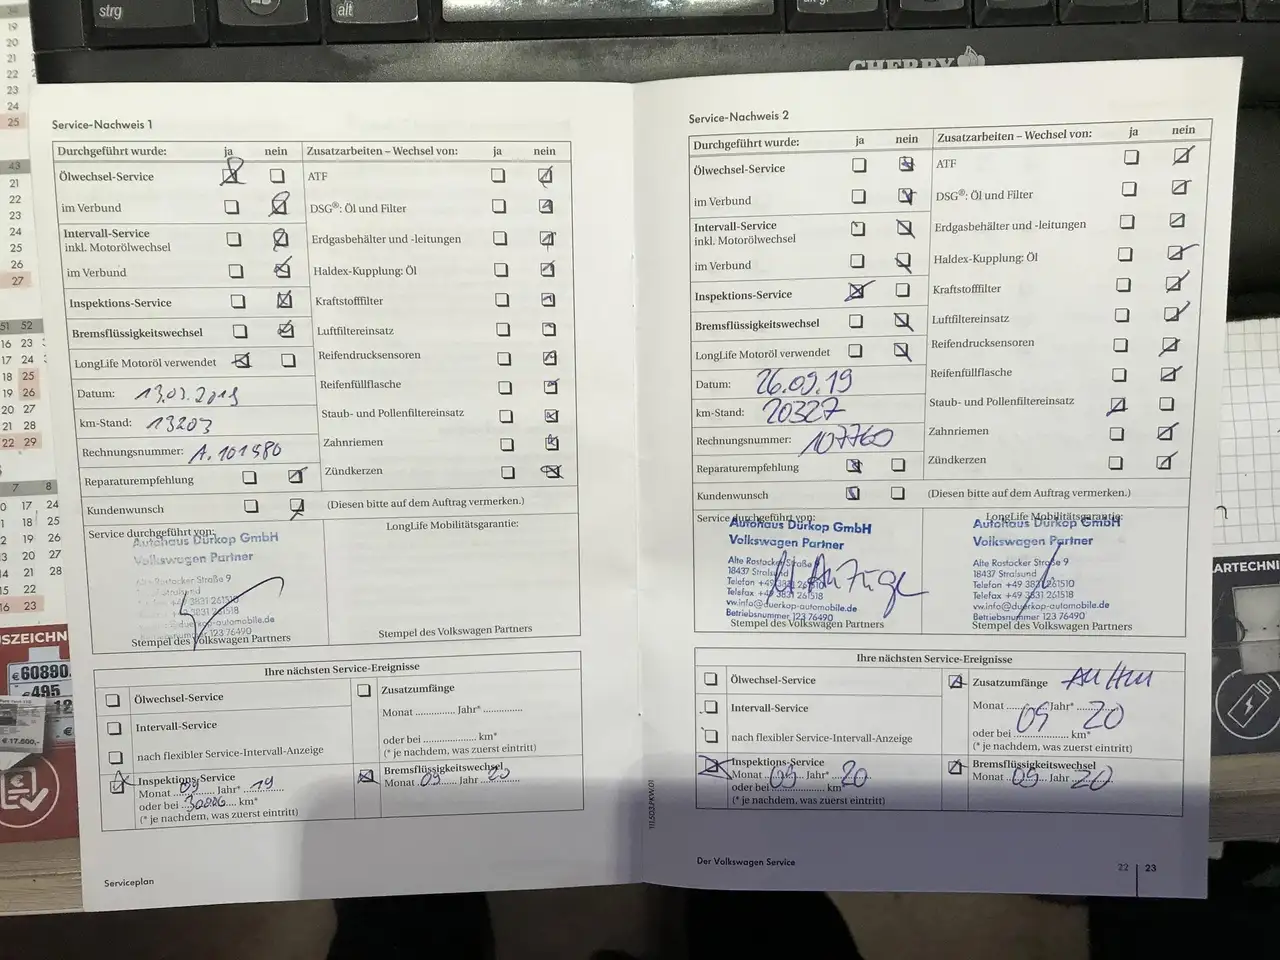 strg
alt
CHERRY
Service-Nachweis 1
Durchgeführt wurde: ja nein
Zusatzarbeiten – Wechsel von: ja nein
Ölwechsel-Service
ATF
im Verbund
DSG®: Öl und Filter
Intervall-Service
inkl. Motorölwechsel
Erdgasbehälter und -leitungen
im Verbund
Haldex-Kupplung: Öl
Inspektions-Service
Kraftstofffilter
Bremsflüssigkeitswechsel
Luftfiltereinsatz
LongLife Motoröl verwendet
Reifendrucksensoren
Datum: 13.03.2019
Reifenfüllflasche
km-Stand: 13203
Staub- und Pollenfiltereinsatz
Rechnungsnummer: A. 101980
Zahnriemen
Reparaturempfehlung
Zündkerzen
Kundenwunsch
(Diesen bitte auf dem Auftrag vermerken.)
Service durchgeführt von:
LongLife Mobilitätsgarantie:
Autohaus Dürkop GmbH
Volkswagen Partner
Alte Rostocker Straße 9
Stralsund
Telefon +49 3831 261510
+49 3831 261518
duerkop-automobile.de
Betriebsnummer 123 76490
Stempel des Volkswagen Partners
Stempel des Volkswagen Partners
Ihre nächsten Service-Ereignisse
Ölwechsel-Service
Zusatzumfänge
Monat .............. Jahr* ..............
Intervall-Service
oder bei .................. km*
nach flexibler Service-Intervall-Anzeige
(* je nachdem, was zuerst eintritt)
Inspektions-Service
Monat 09 Jahr* 19
oder bei 30000 km*
(* je nachdem, was zuerst eintritt)
Bremsflüssigkeitswechsel
Monat 03 Jahr 20
Serviceplan
Service-Nachweis 2
Durchgeführt wurde: ja nein
Zusatzarbeiten – Wechsel von: ja nein
Ölwechsel-Service
ATF
im Verbund
DSG®: Öl und Filter
Intervall-Service
inkl. Motorölwechsel
Erdgasbehälter und -leitungen
im Verbund
Haldex-Kupplung: Öl
Inspektions-Service
Kraftstofffilter
Bremsflüssigkeitswechsel
Luftfiltereinsatz
LongLife Motoröl verwendet
Reifendrucksensoren
Datum: 26.09.19
Reifenfüllflasche
km-Stand: 20327
Staub- und Pollenfiltereinsatz
Rechnungsnummer: 107760
Zahnriemen
Reparaturempfehlung
Zündkerzen
Kundenwunsch
(Diesen bitte auf dem Auftrag vermerken.)
Service durchgeführt von:
LongLife Mobilitätsgarantie:
Autohaus Dürkop GmbH
Volkswagen Partner
Alte Rostocker Straße 9
18437 Stralsund
Telefon +49 3831 261510
Telefax +49 3831 261518
vw.info@duerkop-automobile.de
Betriebsnummer 123 76490
Stempel des Volkswagen Partners
Autohaus Dürkop GmbH
Volkswagen Partner
Alte Rostocker Straße 9
18437 Stralsund
Telefon +49 3831 261510
Telefax +49 3831 261518
vw.info@duerkop-automobile.de
Betriebsnummer 123 76490
Stempel des Volkswagen Partners
Ihre nächsten Service-Ereignisse
Ölwechsel-Service
Zusatzumfänge
Monat 09 Jahr* 20
Intervall-Service
oder bei .................. km*
nach flexibler Service-Intervall-Anzeige
(* je nachdem, was zuerst eintritt)
Inspektions-Service
Monat 09 Jahr* 20
oder bei .................. km*
(* je nachdem, was zuerst eintritt)
Bremsflüssigkeitswechsel
Monat 09 Jahr 20
111.5D3.PKW.01
Der Volkswagen Service
22 23